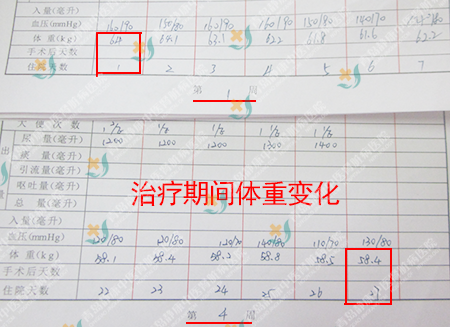 入量(毫升)
血压(mmHg) 160/90 150/80 162/90 160/90 150/80 140/70
体重(kg) 64 64.1 63.1 62.2 61.8 61.6 62.2
手术后天数
住院天数 1 2 3 4 5 6 7
第 1 周
大便次数
尿量(毫升) 1200 1200 1200 1300 1400
痰量(毫升)
引流量(毫升)
呕吐量(毫升)
总量(毫升)
治疗期间体重变化
入量(毫升)
血压(mmHg) 120/80 120/80 120/70 140/80 110/70 130/80
体重(kg) 58.1 58.4 58.2 58.8 58.5 58.4
手术后天数
住院天数 22 23 24 25 26 27
第 4 周